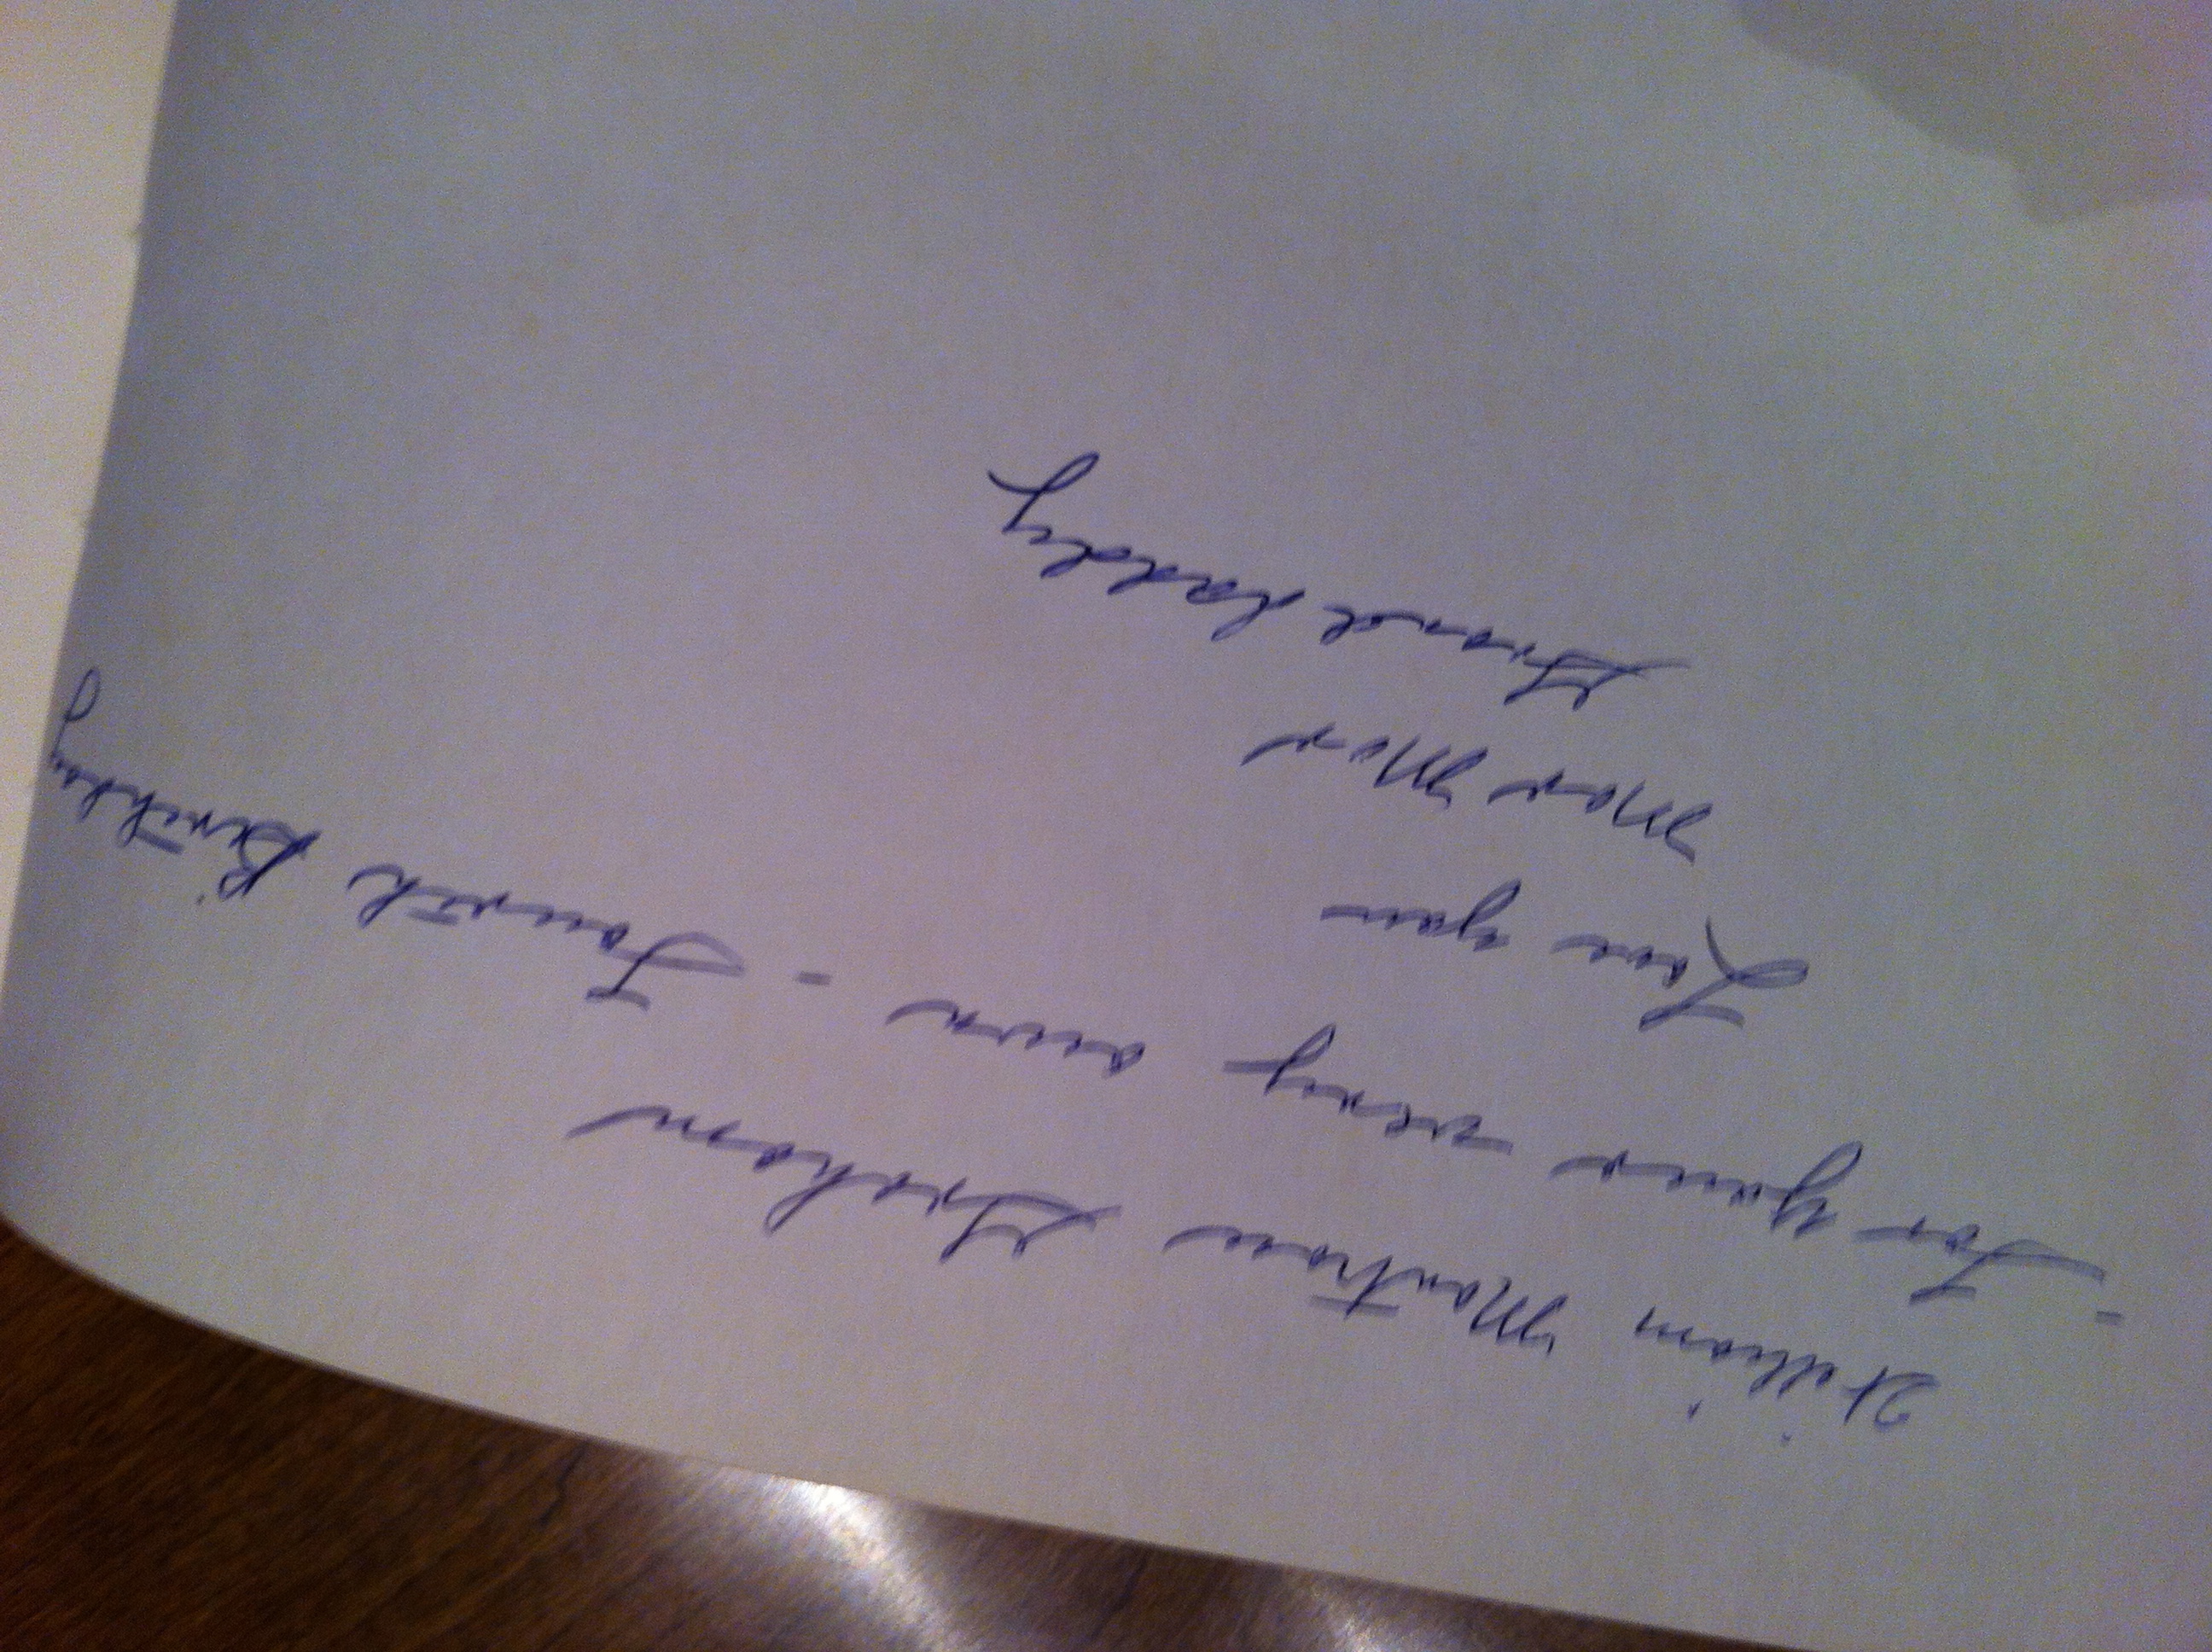 William Montrose Graham
- For your very own - Fourth Birthday
Love you
Mor Mor
Grand Daddy